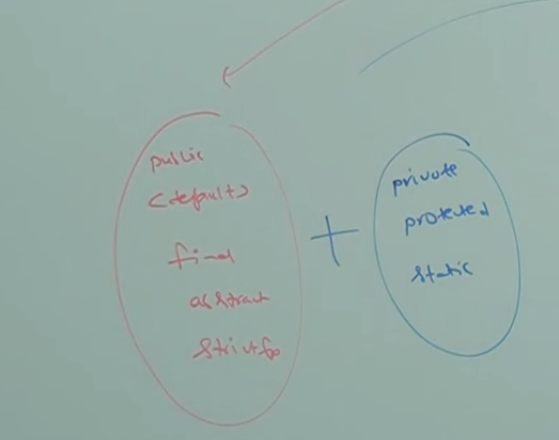 public
<default>
final
abstract
strictfp
+
private
protected
static